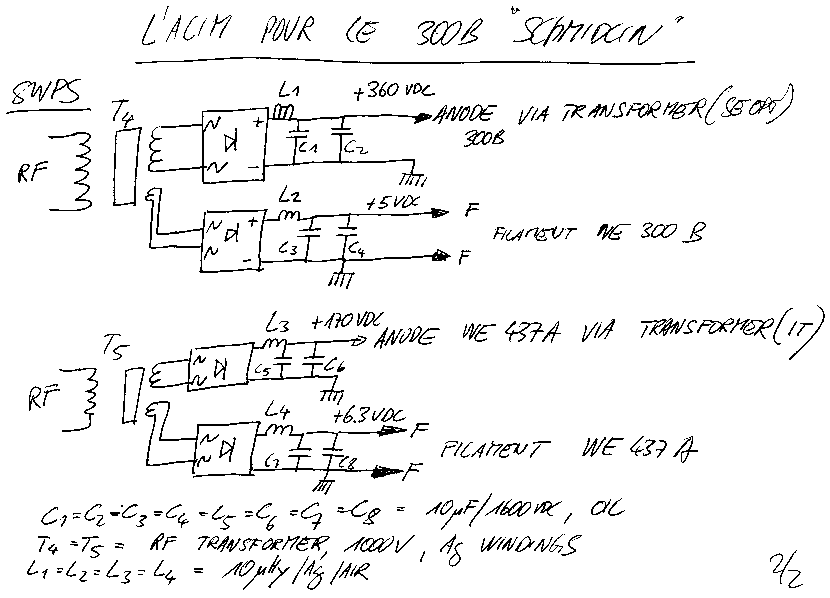 L'ACIM POUR LE 300B "SCHMIDLIN"
SWPS
T4
RF
L1
+360 VDC
ANODE VIA TRANSFORMER (SE OPT)
300B
C1 C2
L2
+5 VDC
F
FILAMENT WE 300 B
C3 C4
F
T5
RF
L3
+170 VDC
ANODE WE 437A VIA TRANSFORMER (IT)
C5 C6
L4
+6.3 VDC
F
FILAMENT WE 437 A
C7 C8
F
C1=C2=C3=C4=C5=C6=C7=C8 = 10µF/1600VDC, OIL
T4=T5= RF TRANSFORMER, 1000V, Ag WINDINGS
L1=L2=L3=L4 = 10µHy/Ag/AIR
2/2